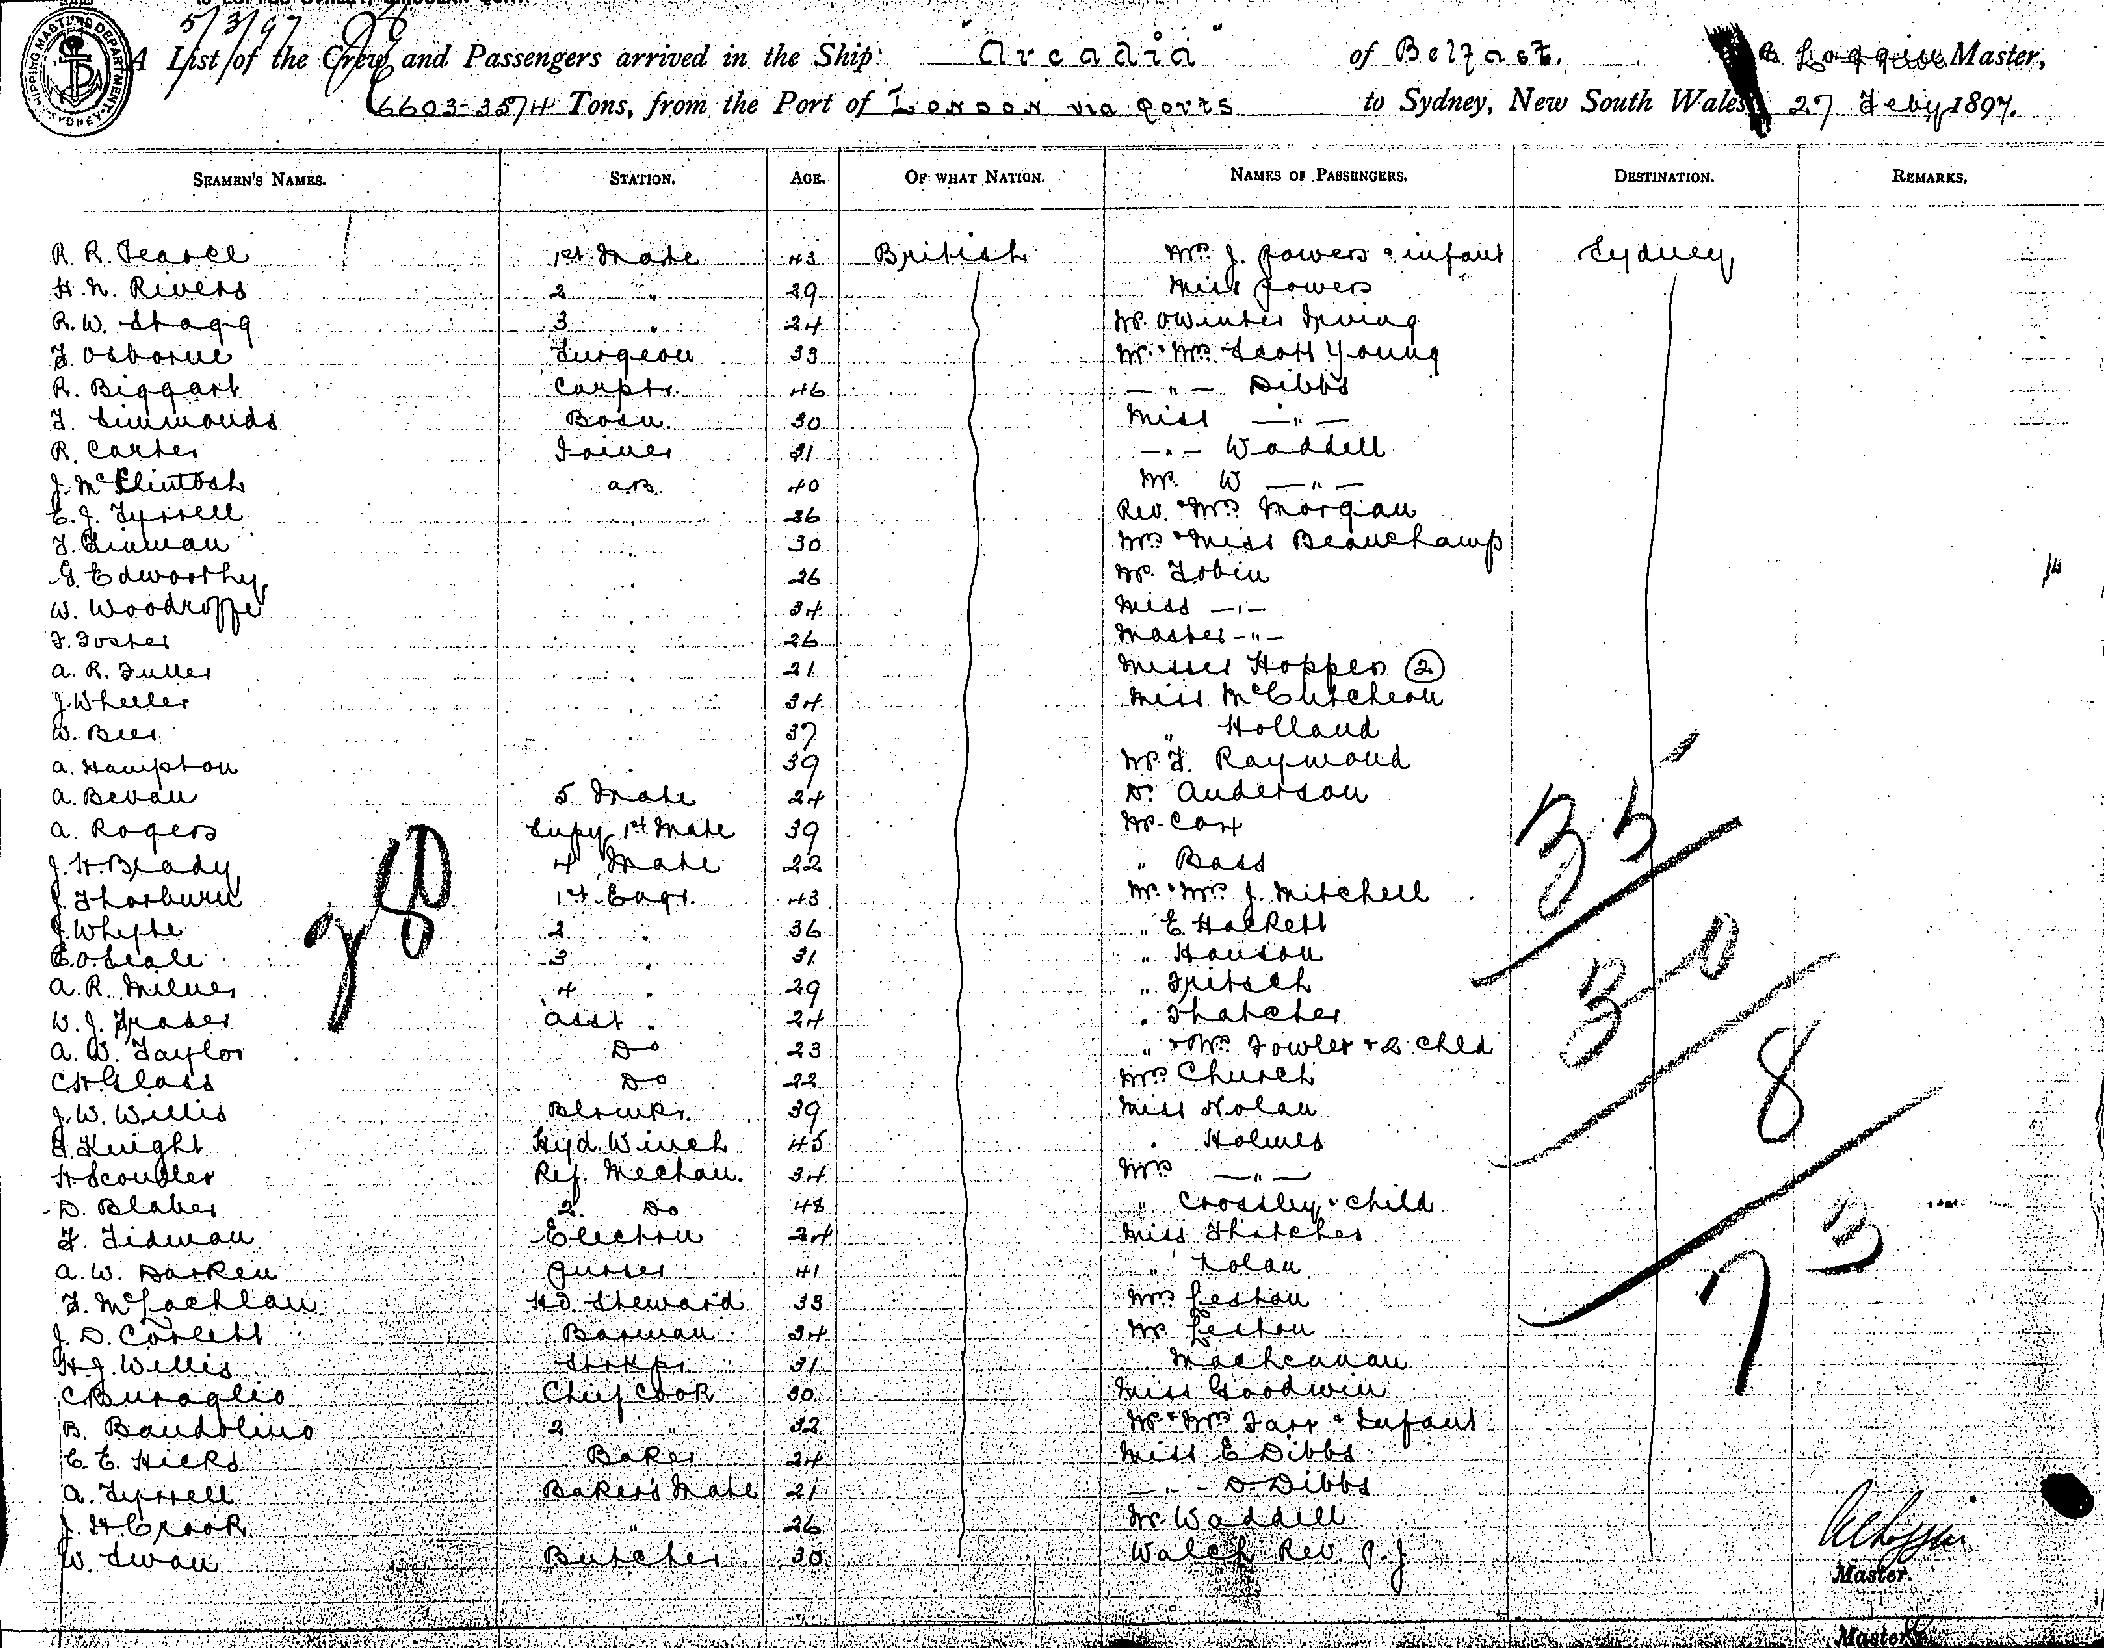 5/3/97
SHIPPING MASTERS DEPARTMENT SYDNEY
A List of the Crew and Passengers arrived in the Ship "Arcadia" of Belfast. Master,
6603-3574 Tons, from the Port of London via ports to Sydney, New South Wales 27 Feby 1897.
SEAMEN'S NAMES. STATION. AGE. OF WHAT NATION. NAMES OF PASSENGERS. DESTINATION. REMARKS.
R. R. Pearce 1st Mate 43 British Mrs J. Powers & infant Sydney
H. N. Rivers 2 " 29 Miss Powers
R. W. Stagg 3 " 24 Mr. O Winter Irving
F. Osborne Surgeon 33 Mr. & Mrs Scott Young
R. Biggart Carptr. 46 — " — Dibbs
F. Simmonds Bosn. 30 Miss — " —
R. Carter Joiner 31 — " — Waddell
J. McClintosh A.B. 40 Mr. W — " —
E. J. Tyrrell 36 Rev. & Mrs Morgan
30 Mrs & Miss Beauchamp
G. Edworthy 26 Mr. Tobin
W. Woodroffe 34 Miss — " —
F. Foster 26 Master — " —
A. R. Fuller 21 Misses Hopper (2)
J. Wheeler 34 Miss McCutcheon
W. Beer 37 " Holland
A. Hampton 39 Mr. F. Raymond
A. Bevan 5 Mate 24 Dr. Anderson
A. Rogers Supy 1st Mate 39 Mr. Cox
J. H. Brady 4 Mate 22 " Bass
J. Thorburn 1st Engr. 43 Mr. & Mrs J. Mitchell
J. Whyte 2 " 36 " E Hackett
E. O. Seale 3 " 31 " Hanson
A. R. Milner 4 " 29 " Fritsch
W. J. Fraser Asst " 24 " Thatcher
A. W. Taylor Do 23 " & Mrs Fowler & 2 Chld
C H Glass Do 22 Mrs Church
J. W. Willis Blrmkr. 39 Miss Nolan
F. Knight Hyd. Winch 45 " Holmes
H Scoubler Ref. Mechan. 34 Mrs — " —
D. Blaber 2 Do 48 " Crossley & child
F. Tidman Electrn 24 Miss Thatcher
A. W. Darken Purser 41 " Nolan
F. McLachlan Hd. Steward 33 Mrs Leston
J. D. Corlett Barman 34 Mr. Leston
H. J. Willis Storkpr 31
C Buraglio Chief Cook 30 Miss Goodwin
B. Bandolino 2 " 32 Mr. & Mrs Farr & Infant
E. E. Hicks Baker 24 Miss E Dibbs
A. Tyrrell Baker's Mate 21 — " — D. Dibbs
J. H. Crook " 26 Mr. Waddell
W. Swan Butcher 30 Walsh Rev P. J
35
30
8
73
Master.
Master